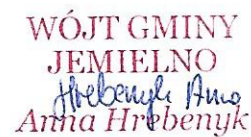 WÓJT GMINY
JEMIELNO
Hrebenyk Anna
Anna Hrebenyk